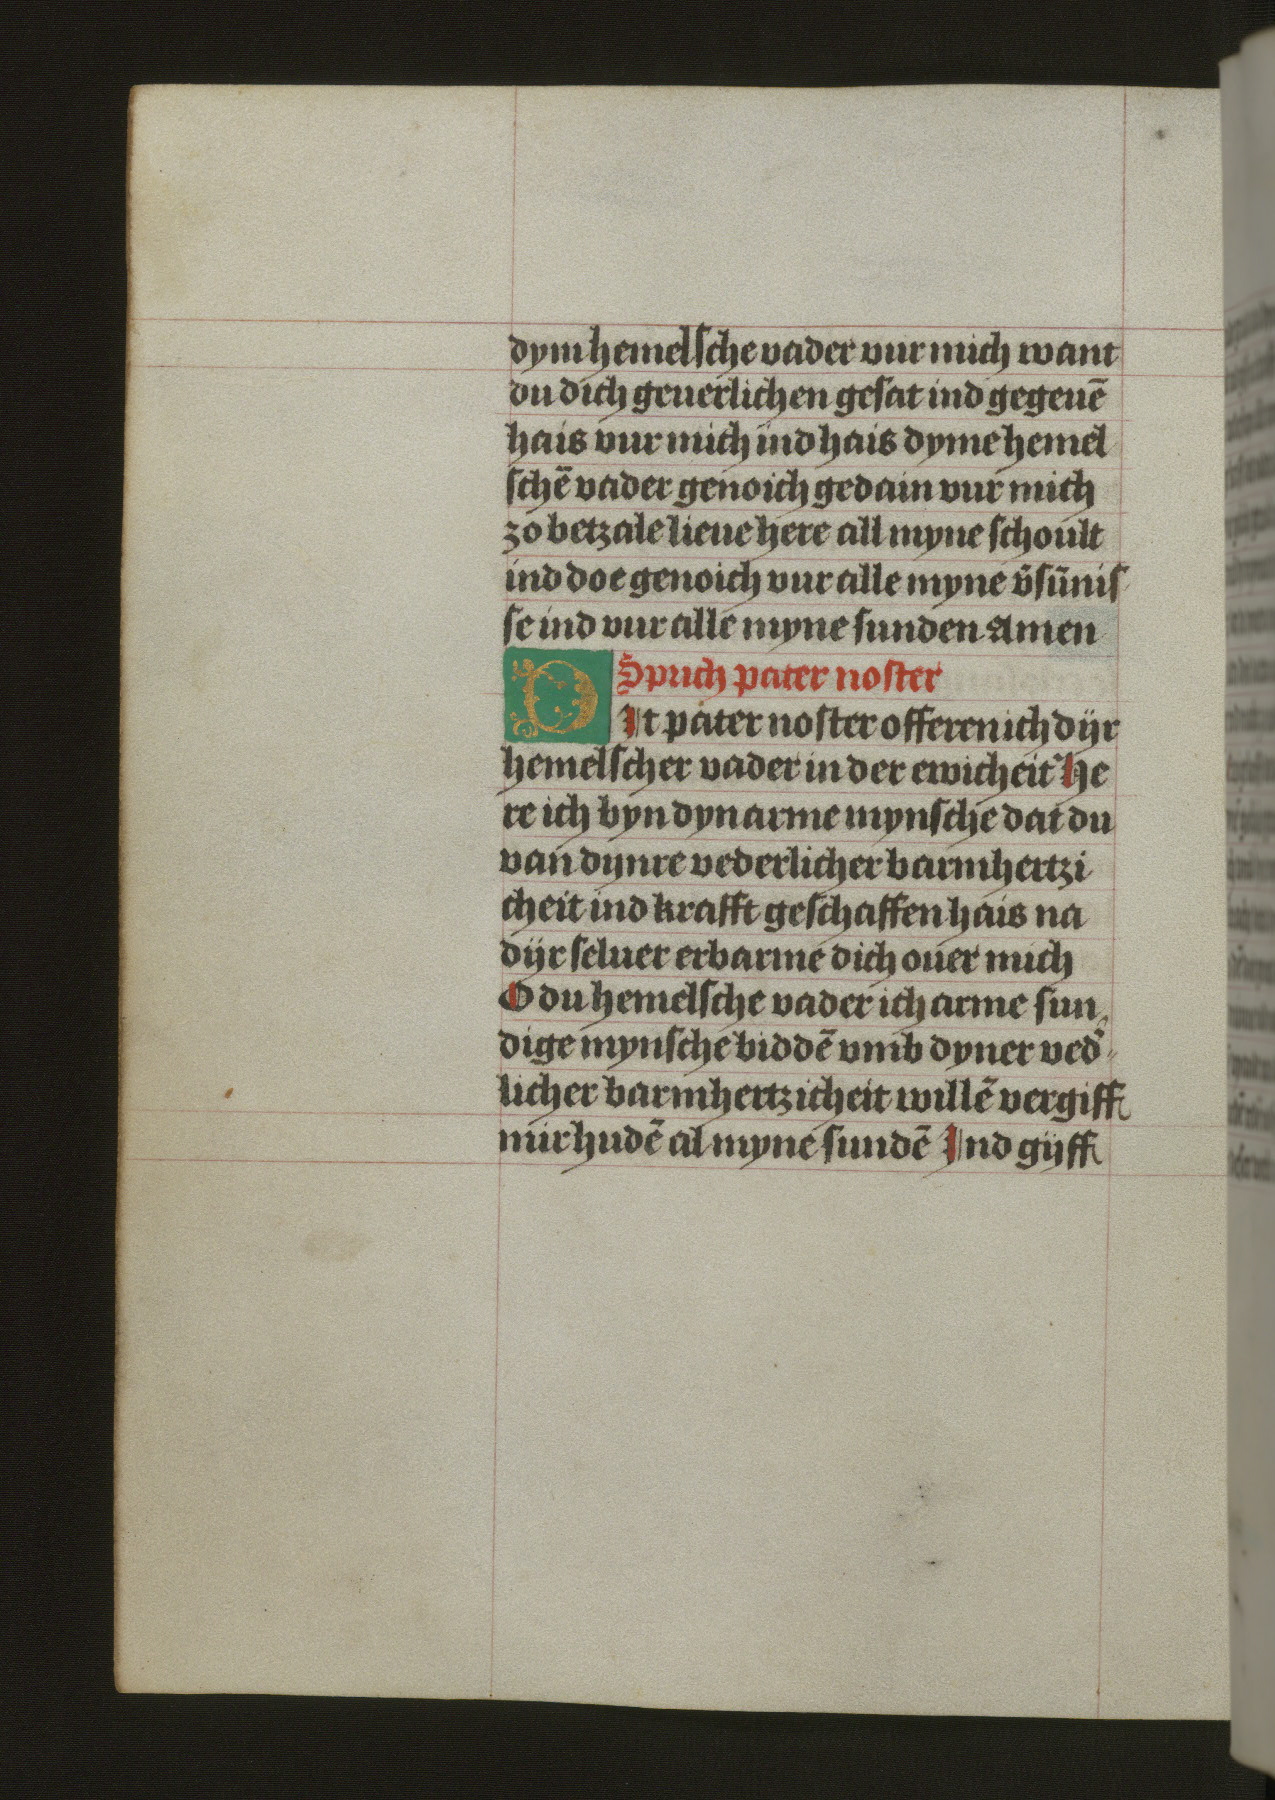 dym hemelsche vader vur mich want
du dich geuerlichen gesat ind gegeuē
hais vur mich ind hais dyme hemel
schē vader genoich gedain vur mich
zo betzale lieue here all myne schoult
ind doe genoich vur alle myne v̄sūnis
se ind vur alle myne sunden Amen
Sprich pater noster
DIt pater noster offeren ich dijr
hemelscher vader in der ewicheit He
re ich byn dyn arme mynsche dat du
van dynre vederlicher barmhertzi
cheit ind krafft geschaffen hais na
dijr seluer erbarme dich ouer mich
O du hemelsche vader ich arme sun
dige mynsche biddē vmb dyner ved̛
licher barmhertzicheit willē vergiff
mir hudē al myne sundē Ind gijff